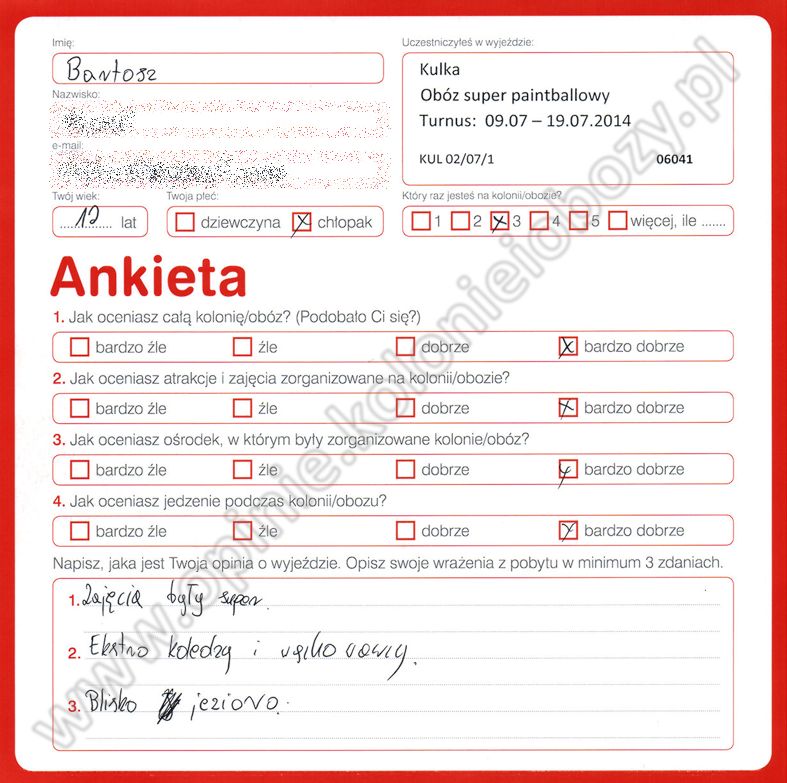 Imię:
Bartosz
Nazwisko:
e-mail:
Twój wiek:
12 lat
Twoja płeć:
dziewczyna chłopak
Uczestniczyłeś w wyjeździe:
Kulka
Obóz super paintballowy
Turnus: 09.07 – 19.07.2014
KUL 02/07/1 06041
Który raz jesteś na kolonii/obozie?
1 2 3 4 5 więcej, ile .......
Ankieta
1. Jak oceniasz całą kolonię/obóz? (Podobało Ci się?)
bardzo źle źle dobrze bardzo dobrze
2. Jak oceniasz atrakcje i zajęcia zorganizowane na kolonii/obozie?
bardzo źle źle dobrze bardzo dobrze
3. Jak oceniasz ośrodek, w którym były zorganizowane kolonie/obóz?
bardzo źle źle dobrze bardzo dobrze
4. Jak oceniasz jedzenie podczas kolonii/obozu?
bardzo źle źle dobrze bardzo dobrze
Napisz, jaka jest Twoja opinia o wyjeździe. Opisz swoje wrażenia z pobytu w minimum 3 zdaniach.
1. Zajęcia były super.
2. Ekstro koledzy i
3. Blisko jezioro.
www.opinie.kolonieiobozy.pl